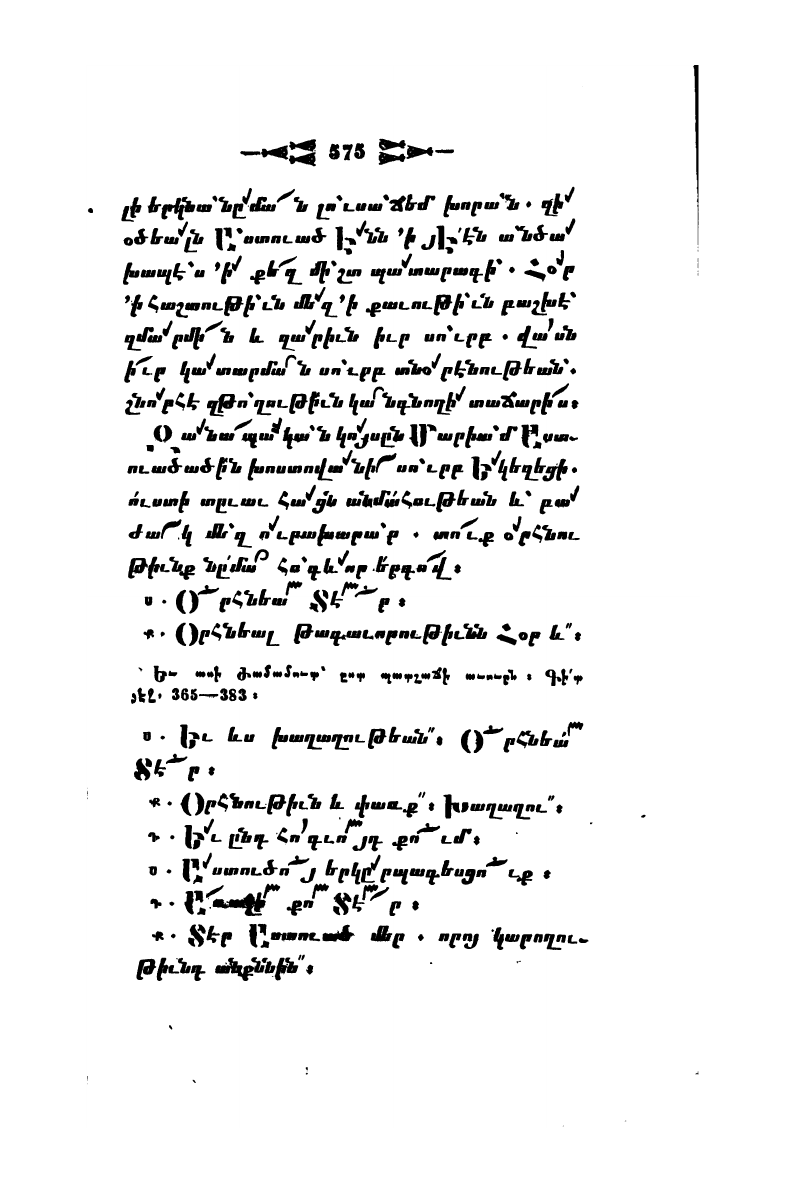 575
լի երկնա՝նը՛մա՜ն լո՝ւսա՝ճեմ խորա՝ն. զի՛
օծեա՛լն Ա՝ստուած Է՛նն ՚ի յԷ՛էն ա՝նծա՛
խապէ՝ս ՚ի՛ քե՜զ մի՝շտ պա՛տարագի՝. Հօ՛ր
՚ի հաշտութի՝ւն մե՛զ ՚ի քաւութի՝ւն բաշխէ՝
զմա՛րմի՜ն և զա՛րիւն իւր սո՝ւրբ. վա՛սն
ի՜ւր կա՛տարմա՜ն սո՝ւրբ տնօ՛րէնութեան՝.
շնո՛րհէ զթո՝ղութի՜ւն կա՜նգնողի՛ տաճարի՜ս։
Զա՛նա՜պա՛կա՝ն կո՛յսըն Մարիա՝մ Աստ-
ուածածի՜ն խոստովա՛նի՜ սո՝ւրբ Ե՛կեղեցի.
ո՛ւստի տըւաւ հա՛ցն անմահութեան և՝ բա՛
ժա՜կ մե՝զ ո՛ւրախարա՝ր. տո՜ւք օ՛րհնու
թիւնք նըմա՜ հո՝գև՛որ երգո՜վ։
ս. Օրհնեա՜ Տէ՜ր։
ք. Օրհնեալ թագաւորութիւնն Հօր և՞։
՝ Եւ ասի ժամամուտ՝ ըստ պատշաճի աւուրն։ Գի՛տ
յէջ. 365—383։
ս. Եւ ևս խաղաղութեան՞։ Օրհնեա՜
Տէ՜ր։
ք. Օրհնութիւն և փառք՞։ Խաղաղու՞։
դ. Ե՛ւ ընդ հո՛գւո՜յդ քո՜ւմ։
ս. Ա՛ստուծո՜յ երկը՛րպագեսցո՜ւք։
դ. Ա՜ռաջի՜ քո՜ Տէ՜ր։
ք. Տէր Աստուած մեր. որոյ կարողու-
թիւնդ անքննին՞։